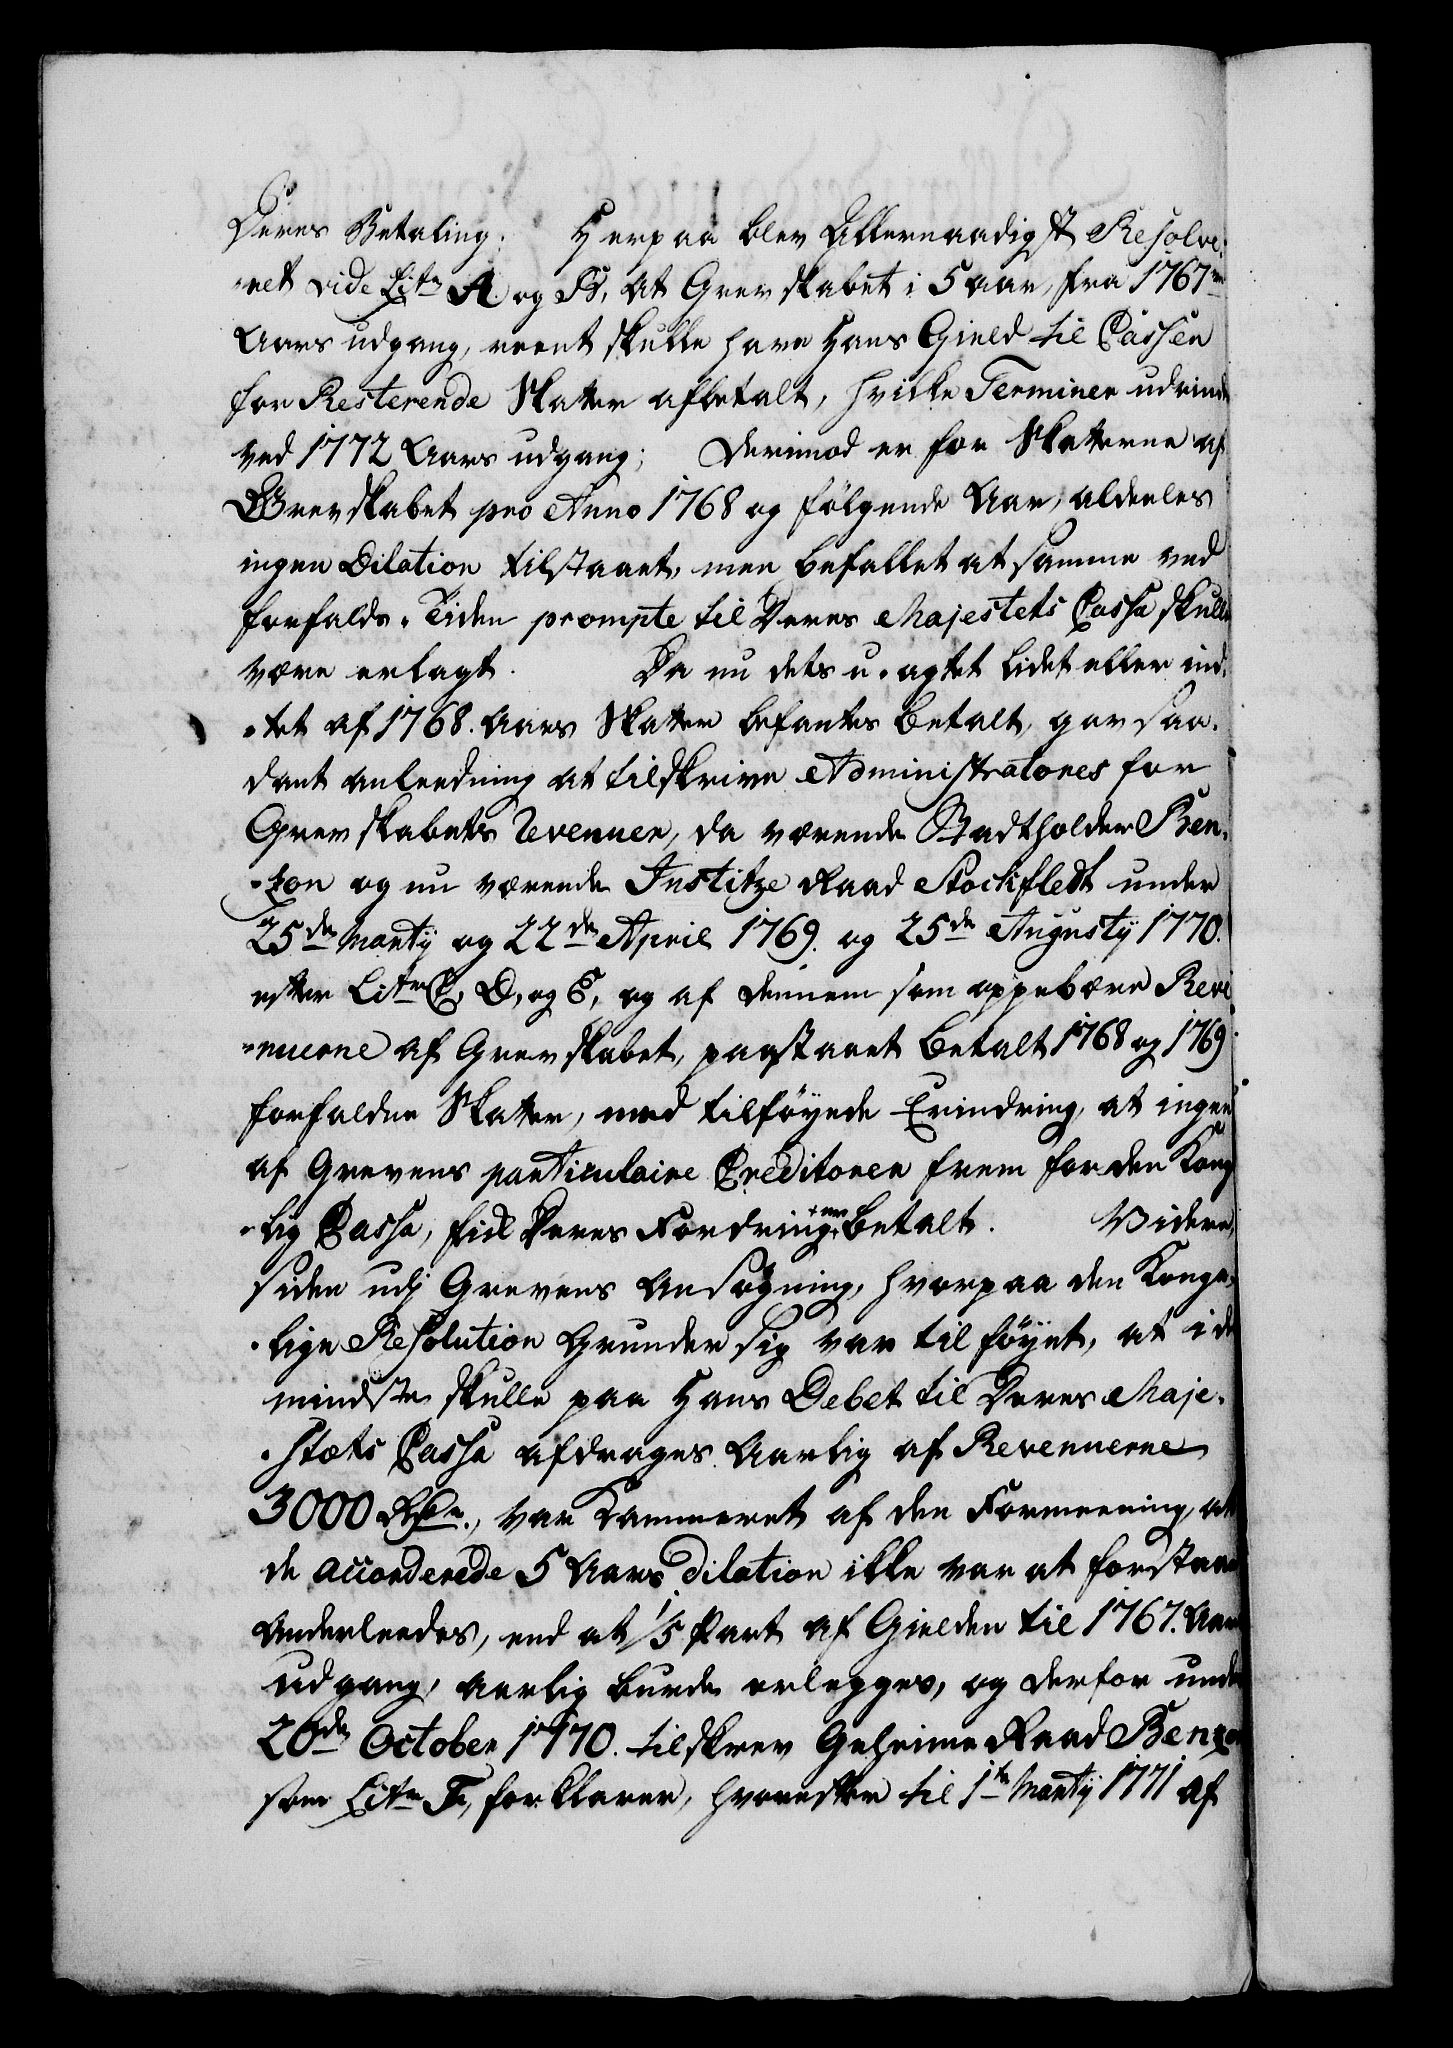 Deres Betaling. Herpaa blev Allernaadigst Resolve-
-ret vide Litr A og B, at Grevskabet i 5 aar, fra 1767de
Aars udgang, reent skulle have Hans Gield til Cassen
for Resterende Skatter afbetalt, hvilke Terminer udrinde
ved 1772 Aars udgang; Derimod er for Skatterne af
Grevskabet pro Anno 1768 og følgende Aar, aldeeles
ingen Dilation tilstaaet, men befallet at samme ved
forfalds-Tiden prompte til Deres Majestets Cassa skulle
være erlagt. Da nu dets u-agtet lidet eller ind-
-tet af 1768. Aars Skatter befantes betalt, gav saa-
dant anleedning at tilskrive Administratores for
Grevskabets Revenuer, da værende Stadtholder Ben-
-zon og nu værende Justitze Raad Stockfledt under
25de Martij og 22de April 1769. og 25de Augustij 1770.
efter Litr C, D, og E, og af dennem som oppebære Reve
-nuerne af Grevskabet, paastaaet betalt 1768 og 1769
forfaldne Skatter, med tilføyede Erindring, at ingen
af Grevens particulaire Creditorer frem for den Konge
-lig Cassa, fick Deres Fordringer betalt. Videre,
siden udj Grevens Ansøgning, hvorpaa den Konge-
-lige Resolution Grunder sig var tilføyet, at i det
mindste skulle paa Hans Debet til Deres Maje-
-stæts Cassa afdrages Aarlig af Revenuerne
3000 Rdr., var Kammeret af den Formeening, at
de accorderede 5 Aars dilation ikke var at forstaae
Anderleedes, end at 1/5 Part af Gielden til 1767. Aars
udgang, aarlig burde erlegges, og derfor under
20de October 1770. tilskrev Geheime Raad Benzon
som Litr F, forklarer, hvorefter til 1te Martij 1771 af